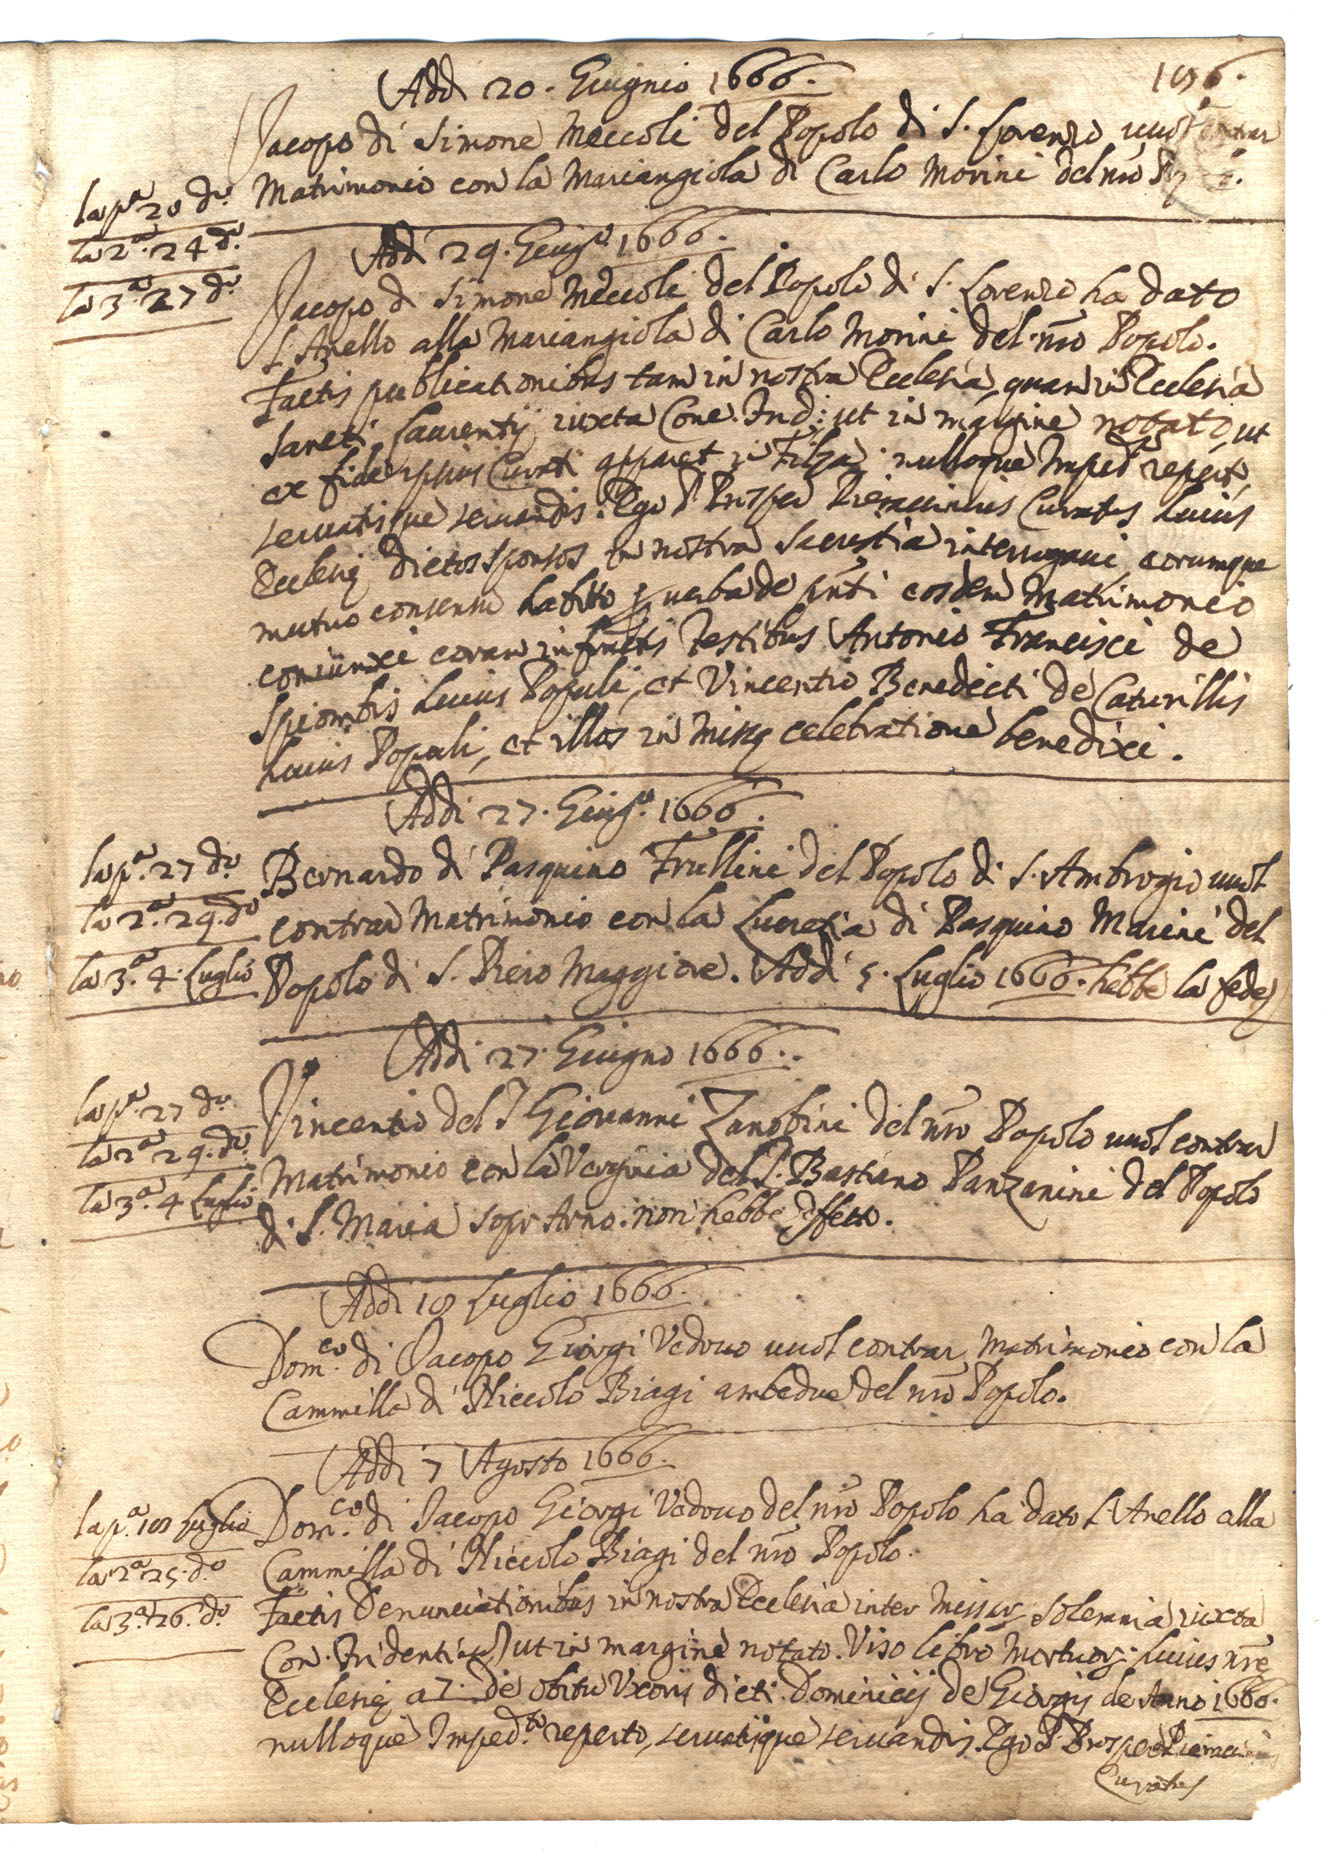 Addi 20. Giugnio 1666.
Jacopo di Simone Meccoli del Popolo di S. Lorenzo vuol contrar
Matrimonio con la Mariangiola di Carlo Morini del nro
la p.a 20 d.o
la 2.a 24 d.o
la 3.a 27 d.o
Addi 29. Giug.o 1666.
Jacopo di Simone Meccoli del Popolo di S. Lorenzo ha dato
l'Anello alla Mariangiola di Carlo Morini del nro Popolo.
Factis publicationibus tam in nostra Ecclesia, quam in Ecclesia
Sancti Laurentij iuxta Conc. Trid: ut in margine notato, ut
ex fide ipsius Curati apparet in Filza nulloque Imped.to reperto,
servatisque servandis. Ego P. Prosper Pieraccinius Curatus huius
Ecclesię dictos sponsos in nostra Sacrestia interrogavi, eorumque
mutuo consensu habito p verba de pnti eosdem Matrimonio
coniunxi coram infrctis Testibus Antonio Francisci de
Spiombis huius Populi, et Vincentio Benedicti de Caturillis
huius Populi, et illos in Missę celebratione benedixi.
Addi 27. Giug.o 1666.
la p.a 27 d.o
la 2.a 29. d.o
la 3.a 4. Luglio
Bernardo di Pasquino Frullini del Popolo di S. Ambrogio vuol
contrar Matrimonio con la Lucretia di Pasquino Marini del
Popolo di S. Piero Maggiore. Addi 5. Luglio 1666. hebbe la fede
Addi 27. Giugno 1666.
la p.a 27 d.o
la 2.a 29. d.o
la 3.a 4 Luglio
Vincentio del S. Giovanni Zanobini del nro Popolo vuol contrar
Matrimonio con la Verginia del S. Bastiano Panzanini del Popolo
di S. Maria sopr Arno. non hebbe effetto.
Addi 18 Luglio 1666.
Dom.co di Jacopo Giorgi Vedovo vuol contrar Matrimonio con la
Cammilla di Niccolo Biagi ambedue del nro Popolo.
Addi 7 Agosto 1666.
la p.a 18 Luglio
la 2.a 25. d.o
la 3.a 26. d.o
Dom.co di Jacopo Giorgi Vedovo del nro Popolo ha dato l'Anello alla
Cammilla di Niccolo Biagi del nro Popolo.
Factis Denunciationibus in nostra Ecclesia inter Missar. solemnia iuxta
Con. Tridentin, ut in margine notato. Viso libro Mortuor. huius nrę
Ecclesię a 7. de obitu Uxoris dicti Dominicij de Giorgijs de Anno 1666.
nulloque Imped.to reperto, servatisque servandis. Ego P. Prosper Pieraccinius
Curatus